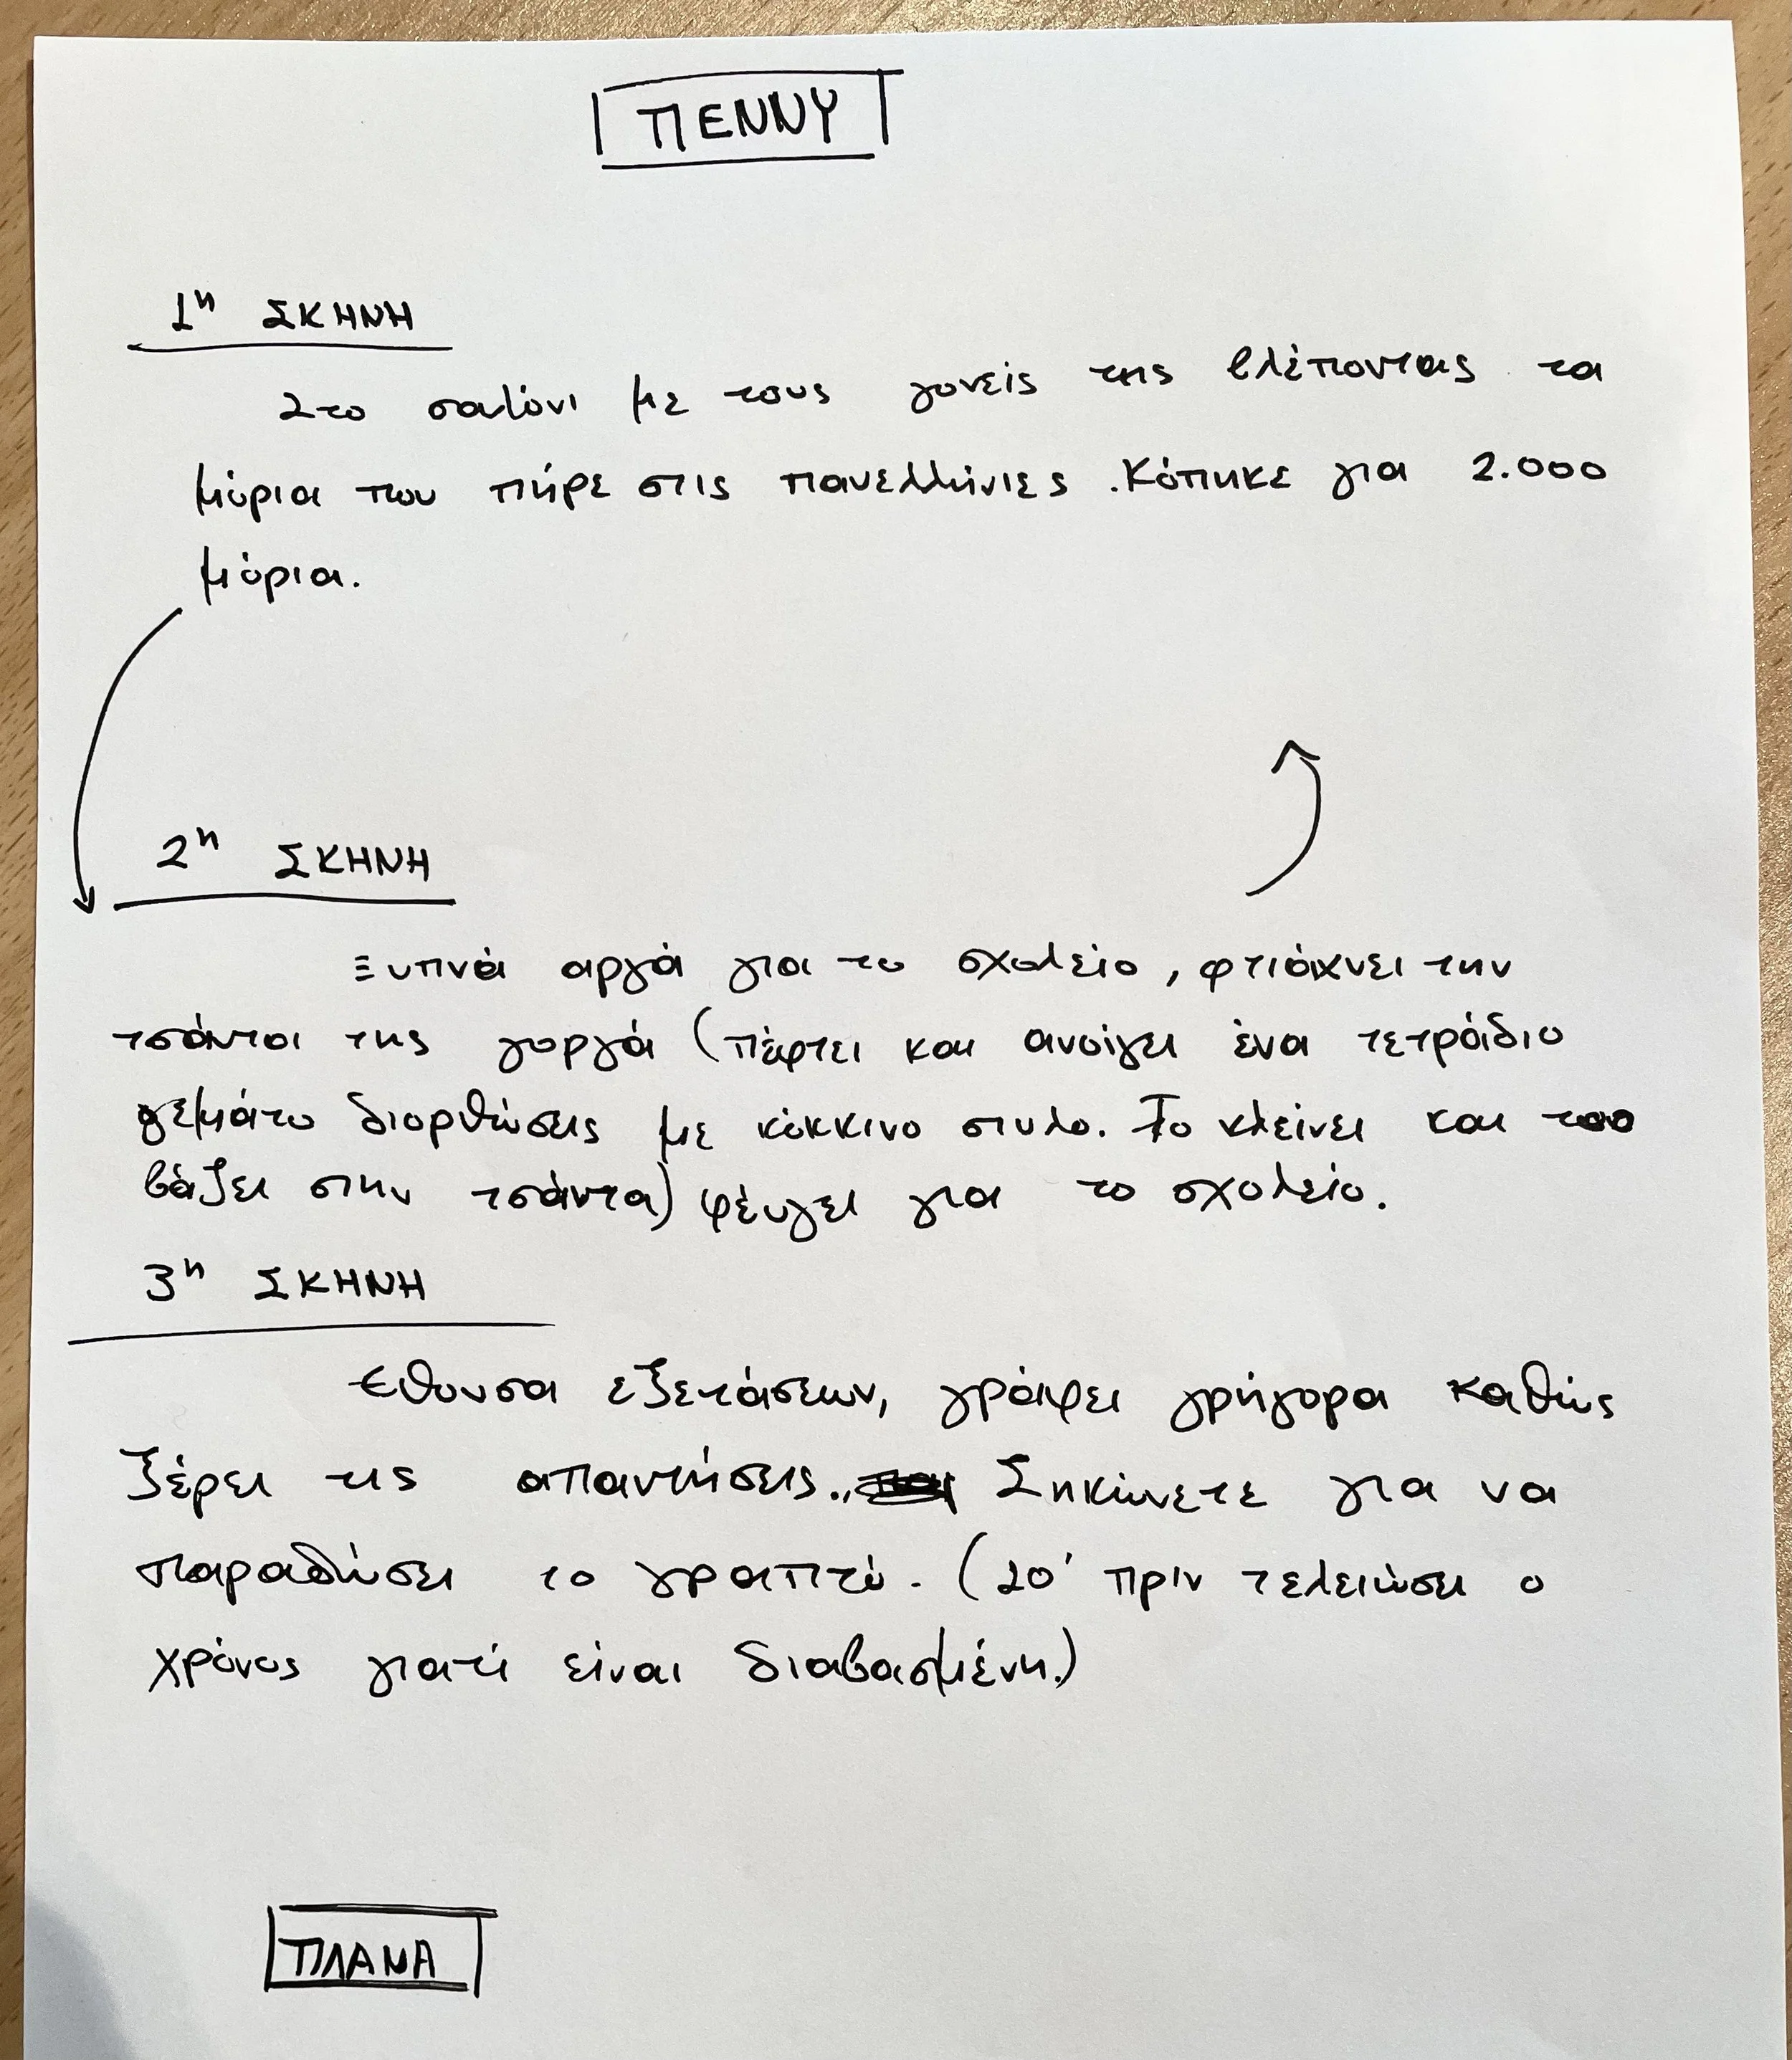 ΠΕΝΝΥ
1η ΣΚΗΝΗ
Στο σαλόνι με τους γονείς της βλέποντας τα
μόρια που πήρε στις πανελλήνιες. Κόπηκε για 2.000
μόρια.
2η ΣΚΗΝΗ
Ξυπνά αργά για το σχολείο, φτιάχνει την
τσάντα της γοργά (πέφτει και ανοίγει ένα τετράδιο
γεμάτο διορθώσεις με κόκκινο στυλο. Το κλείνει και το
βάζει στην τσάντα) φεύγει για το σχολείο.
3η ΣΚΗΝΗ
εθουσα εξετάσεων, γράφει γρήγορα καθώς
ξέρει τις απαντήσεις. Σηκώνετε για να
παραδώσει το γραπτό. (20' πριν τελειώσει ο
χρόνος γιατί είναι διαβασμένη.)
ΠΛΑΝΑ